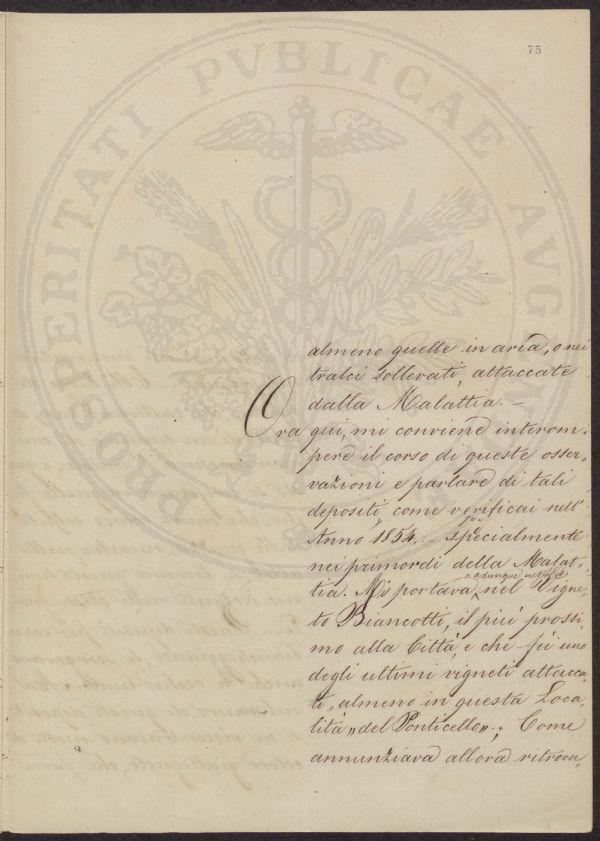 75
PROSPERITATI PVBLICAE AVG
almeno quelle in aria, o nei
tralci sollevati, attaccate
dalla Malattia. –
Ora qui, mi conviene interom-
pere il corso di queste osser-
vazioni e parlare di tali
depositi, come verificai nell'
Anno 1854, – specialmente
nei primordi della Malat-
tia. Mi portava, nel Vigne-
to Biancotti, il più prossi-
mo alla Città, e che fù uno
degli ultimi vigneti attacca-
ti, almeno in questa Loca-
lità „del Ponticello„; Come
annunziava allora ritrova-